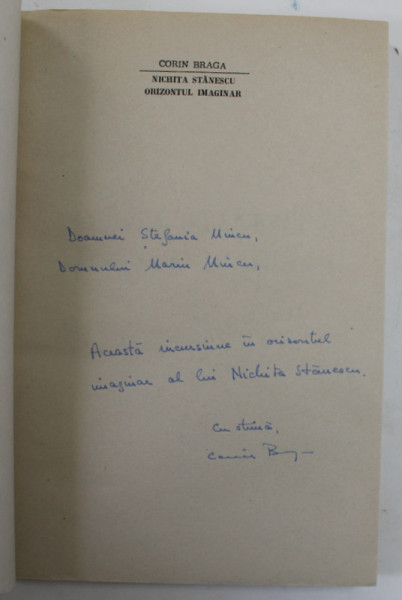 CORIN BRAGA
NICHITA STĂNESCU
ORIZONTUL IMAGINAR
Doamnei Ștefania Mincu,
Domnului Marin Mincu,
Această incursiune în orizontul
imaginar al lui Nichita Stănescu.
Cu stimă,
Corin Braga